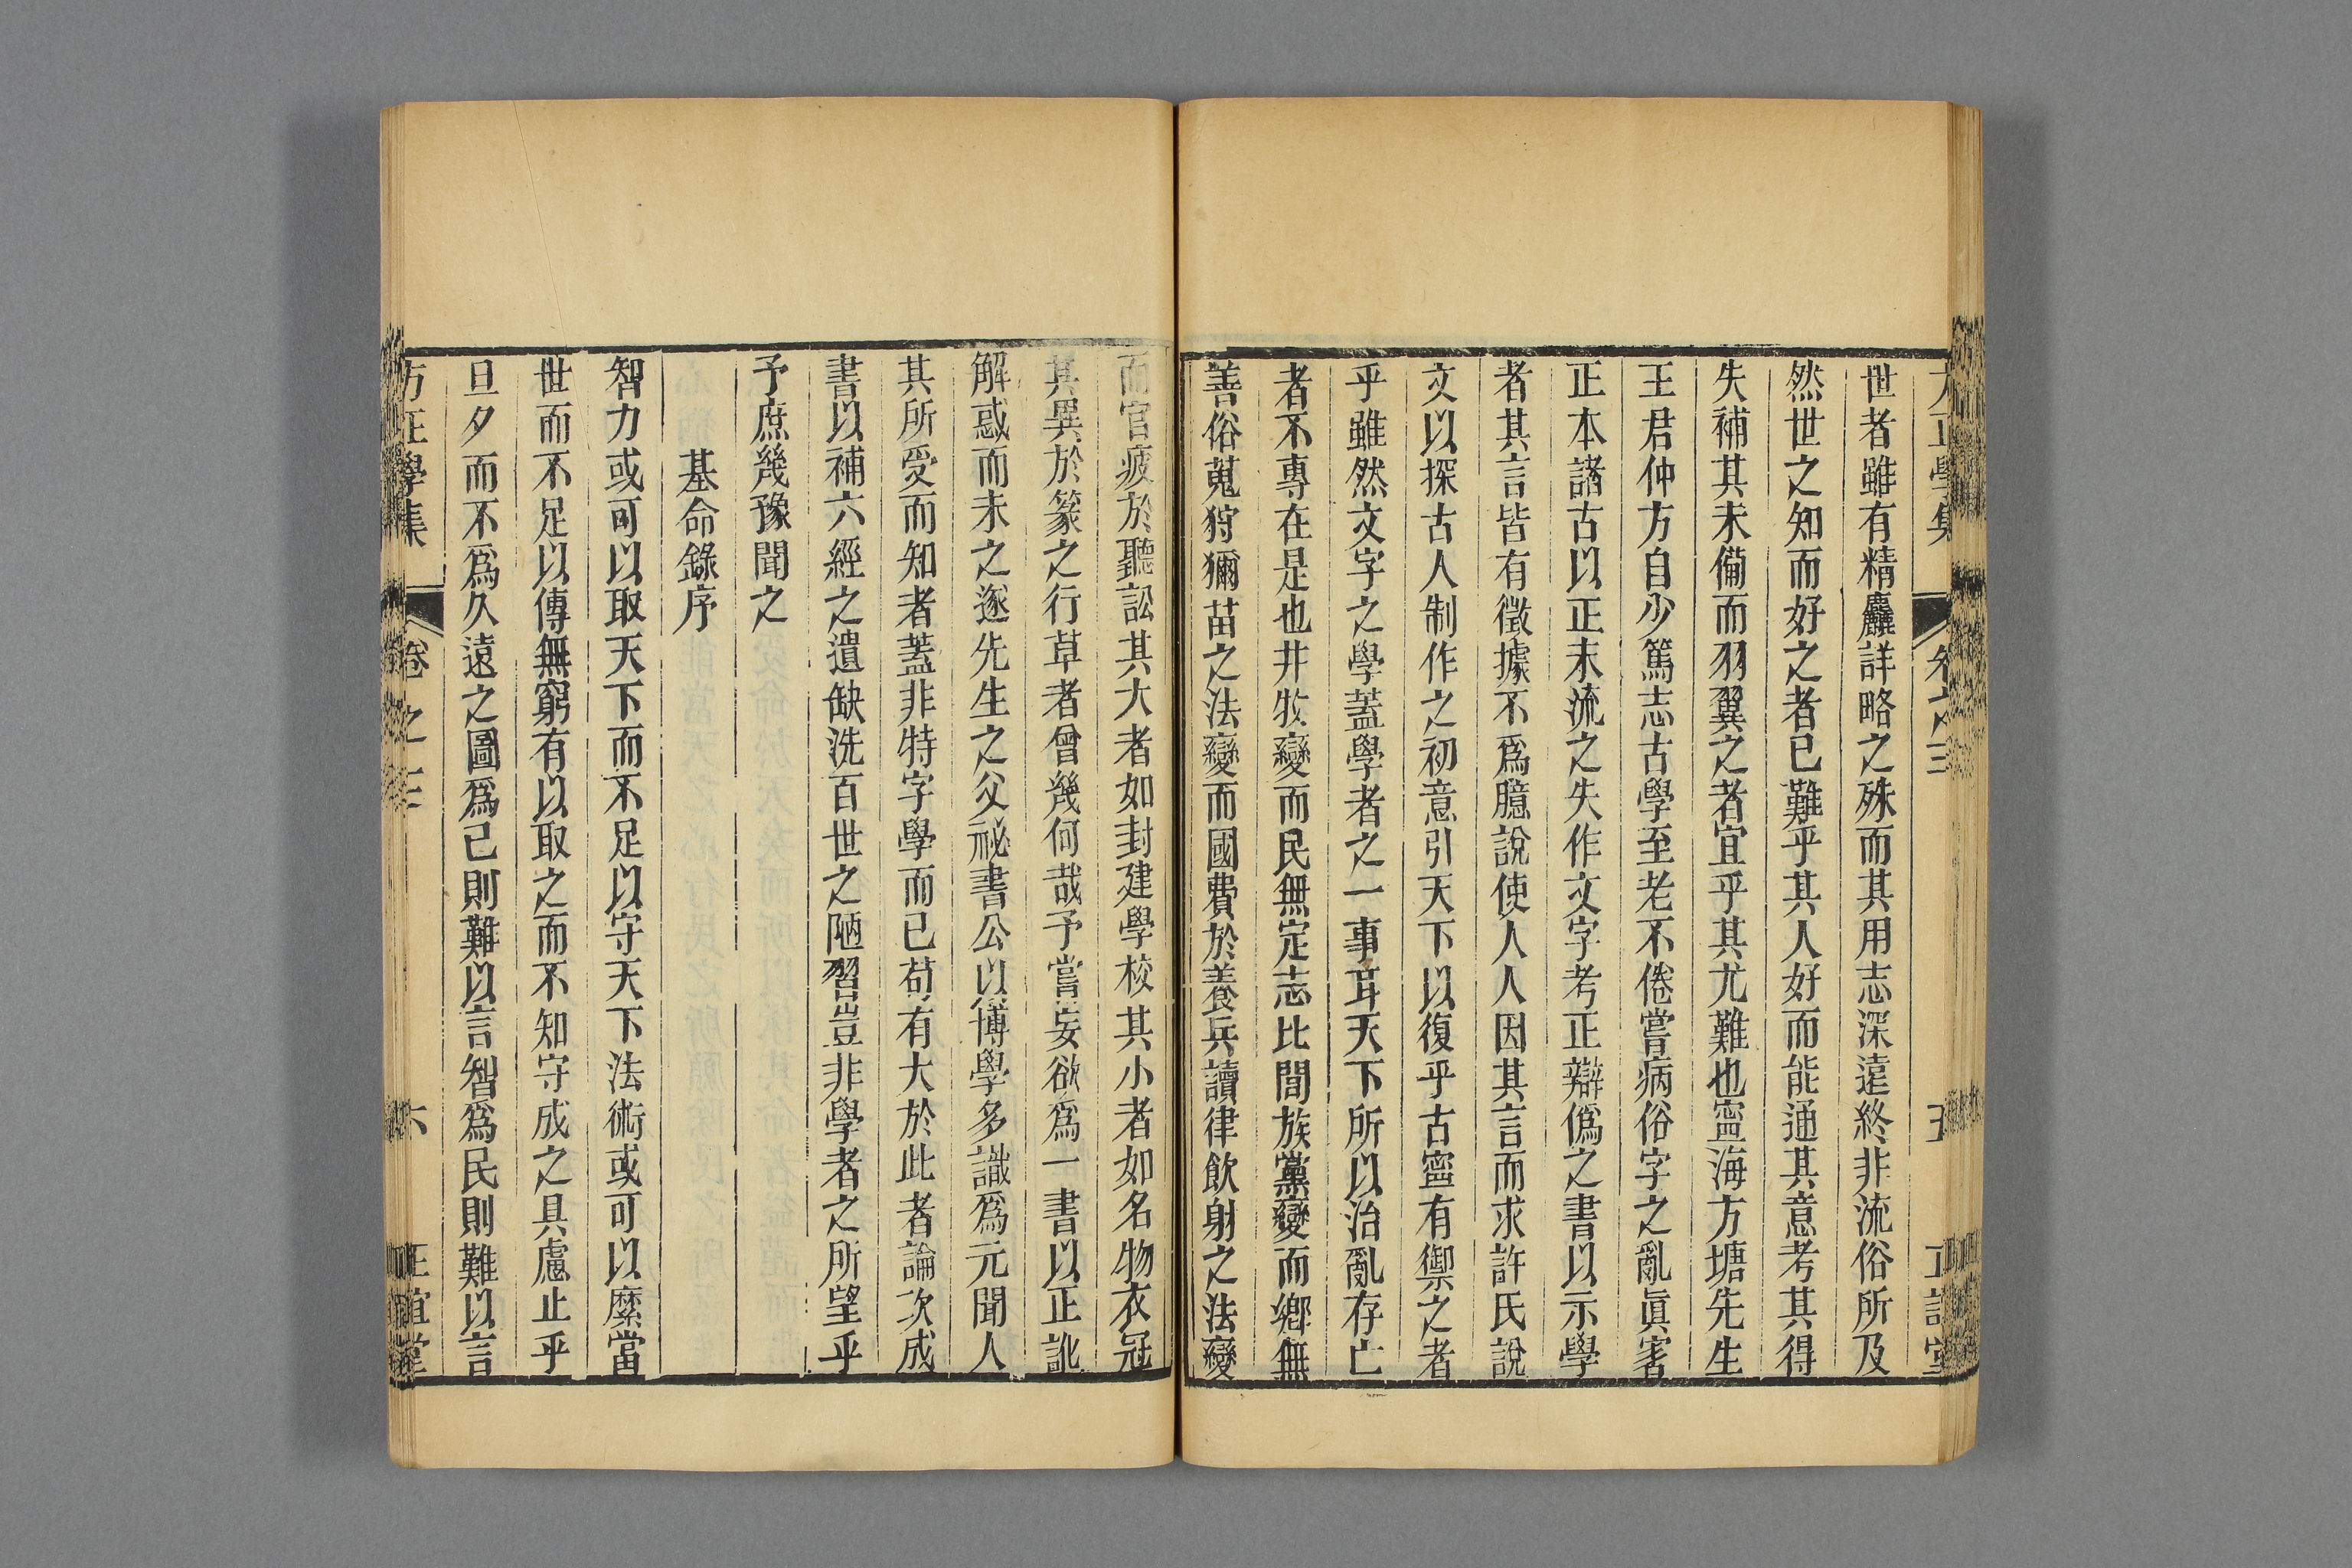 世者雖有精麤詳略之殊而其用志深遠終非流俗所及
然世之知而好之者已難乎其人好而能通其意考其得
失補其未備而羽翼之者宜乎其尤難也寧海方塘先生
王君仲方自少篤志古學至老不倦嘗病俗字之亂眞害
正本諸古以正末流之失作文字考正辯僞之書以示學
者其言皆有徵據不爲臆說使人人因其言而求許氏說
文以探古人制作之初意引天下以復乎古寧有禦之者
乎雖然文字之學蓋學者之一事耳天下所以治亂存亡
者不專在是也井牧變而民無定志比閭族黨變而鄉無
善俗蒐狩獮苗之法變而國費於養兵讀律飲射之法變
而官疲於聽訟其大者如封建學校其小者如名物衣冠
其異於篆之行草者曾幾何哉予嘗妄欲爲一書以正訛
解惑而未之逐先生之父祕書公以博學多識爲元聞人
其所受而知者蓋非特字學而已苟有大於此者論次成
書以補六經之遺缺洗百世之陋習豈非學者之所望乎
予庶幾豫聞之
基命錄序
智力或可以取天下而不足以守天下法術或可以縻當
世而不足以傳無窮有以取之而不知守成之具慮止乎
旦夕而不爲久遠之圖爲己則難以言智爲民則難以言
方正學集 卷之三 六 正誼堂